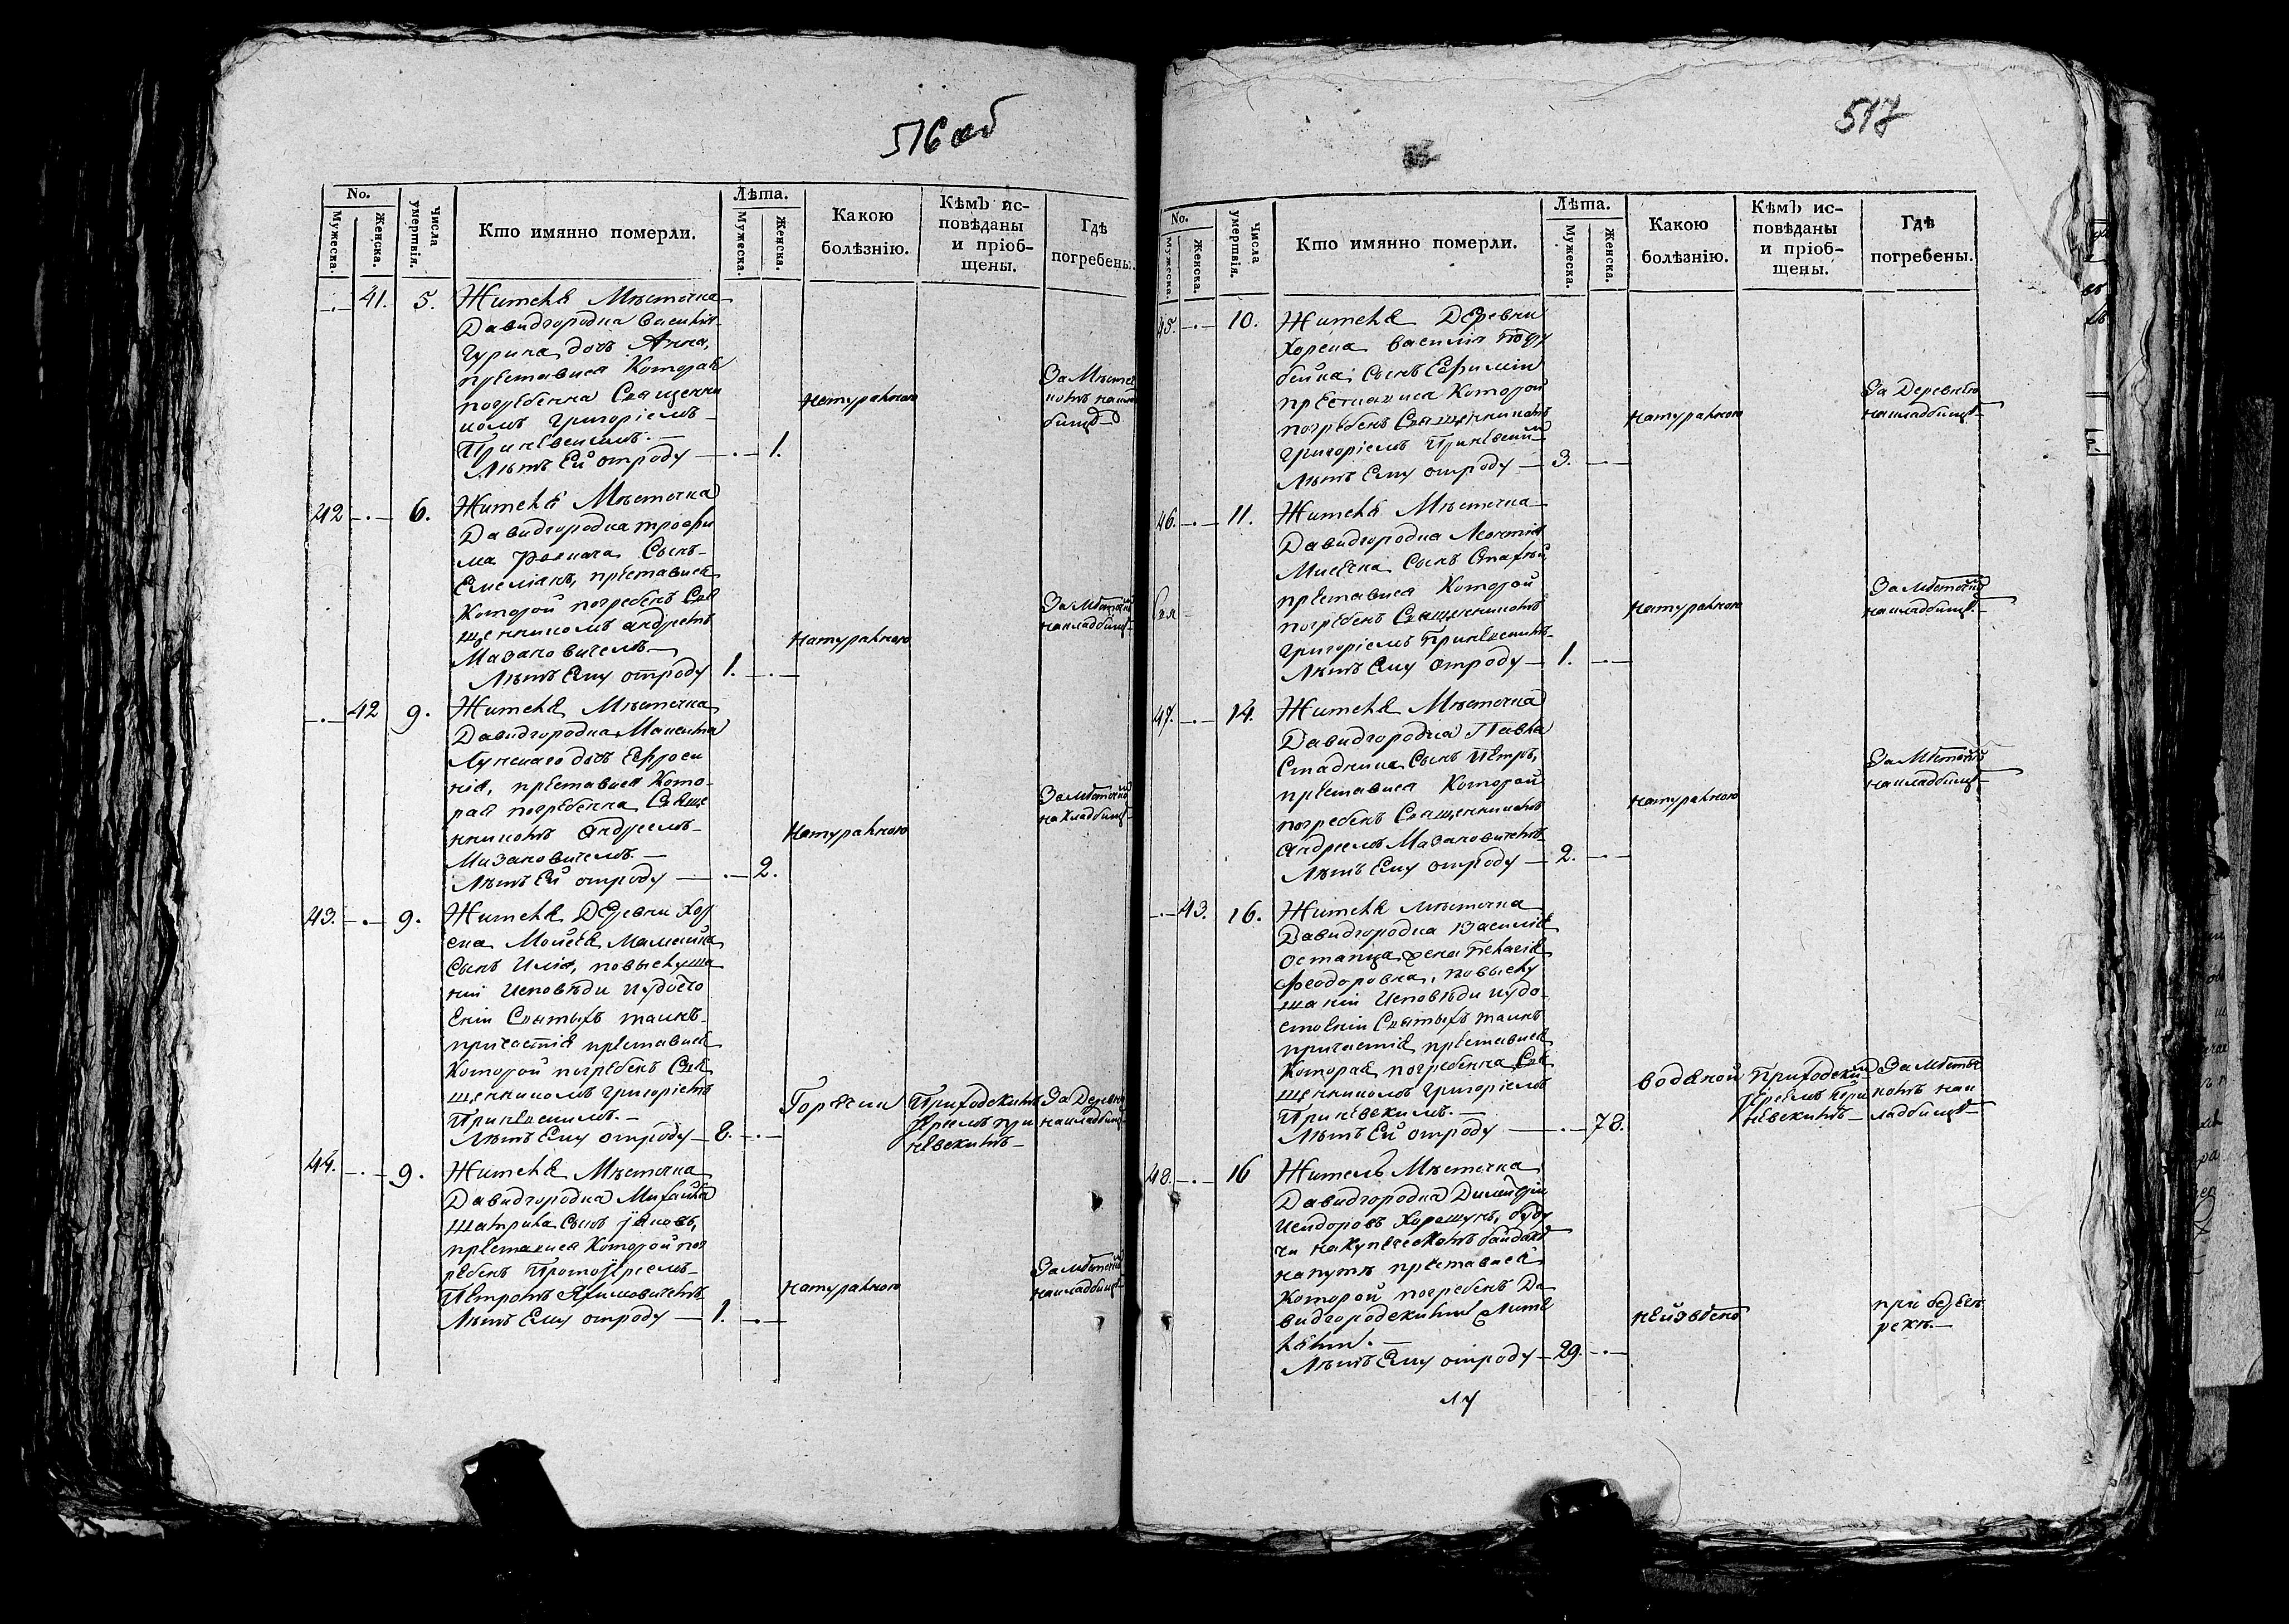 516 об
No.
Лѣта.
Мужеска.
Женска.
Числа умертвія.
Кто имянно померли.
Мужеска.
Женска.
Какою болѣзнію.
Кѣмъ ис-
повѣданы
и пріоб-
щены.
Гдѣ
погребены.
41. 5. Жителя Мѣстечка
Давидгородка Василія
Гурина дочь Анна,
преставися Которая
погребенна Священни
комъ Григоріемъ
Принѣвскимъ.
Лѣтъ Ей отроду 1.
натуральною
За Мѣстеч
комъ на клад
бищѣ
42 6. Жителя Мѣстечка
Давидгородка трофи
ма Сынъ
Емеліянъ, преставися
Которой погребенъ Свя
щенникомъ андреемъ
Мазановичемъ.
Лѣтъ Ему отроду 1.
натуральною
За мѣстечкомъ
на кладбищѣ
42 9. Жителя Мѣстечка
Давидгородка Максима
Лунскаго дочь Ефроси
нія, преставися Кото-
рая погребенна Свяще
нникомъ андреемъ
Мазановичемъ.
Лѣтъ Ей отроду 2.
натуральною
За мѣстечкомъ
на кладбищѣ
43. 9. Жителя Деревни Хор
ска Мойсея Мамайка
Сынъ Илія, повыслуша
ніи Исповѣди иудосто
еніи Святыхъ таинъ
причастія преставися
Которой погребенъ Свя
щенникомъ Григоріемъ
Принѣвскимъ.
Лѣтъ Ему отроду 8.
Горячки
Приходскимъ
Іереемъ При
нѣвскимъ
За Деревнею
на кладбищѣ
44. 9. Жителя Мѣстечка
Давидгородка Михайла
Шатрила Сынъ Іяковъ,
преставися Которой пог
ребенъ Протоіереемъ
Петромъ Якимовичемъ
Лѣтъ Ему отроду 1.
натуральною
За мѣстечкомъ
на кладбищѣ
517
No.
Лѣта.
Мужеска.
Женска.
Числа умертвія.
Кто имянно померли.
Мужеска.
Женска.
Какою болѣзнію.
Кѣмъ ис-
повѣданы
и пріоб-
щены.
Гдѣ
погребены.
45. 10. Жителя Деревни
Хорска василія
Сынъ Ефимій
преставися Которой
погребенъ Священникомъ
Григоріемъ Принѣвскимъ
Лѣтъ Ему отроду 3.
натуральною
За Деревнею
на кладбищѣ
46. 11. Жителя Мѣстечка
Давидгородка Леонтія
Сынъ Стахѣй
преставися Которой
погребенъ Священникомъ
Григоріемъ Принѣвскимъ
Лѣтъ Ему отроду 1.
натуральною
За мѣстечкомъ
на кладбищѣ
47. 14. Жителя Мѣстечка
Давидгородка Павла
Стадника Сынъ Петръ,
преставися Которой
погребенъ Священникомъ
андреемъ Мазановичемъ
Лѣтъ Ему отроду 2.
натуральною
За Мѣстечкомъ
на кладбищѣ
43. 16. Жителя мѣстечка
Давидгородка Василія
Остапца жена Пелагія
феодоровна, повыслу
шаніи Исповѣди иудо
стоеніи Святыхъ таинъ
причастія преставися
Которая погребенна Свя
щенникомъ Григоріемъ
Принѣвскимъ.
Лѣтъ Ей отроду 78.
водяной
Приходскимъ
Іереемъ При
нѣвскимъ
За Мѣстеч
комъ на к
ладбищѣ
48. 16 Житель Мѣстечка
Давидгородка Димитрій
Исидоровъ Хорошунъ, буду
чи на Купеческомъ байдакѣ
напутѣ преставися
Которой погребенъ Да
видгородскими
Лѣтъ Ему отроду 29.
неизвѣстно
при
рекѣ.